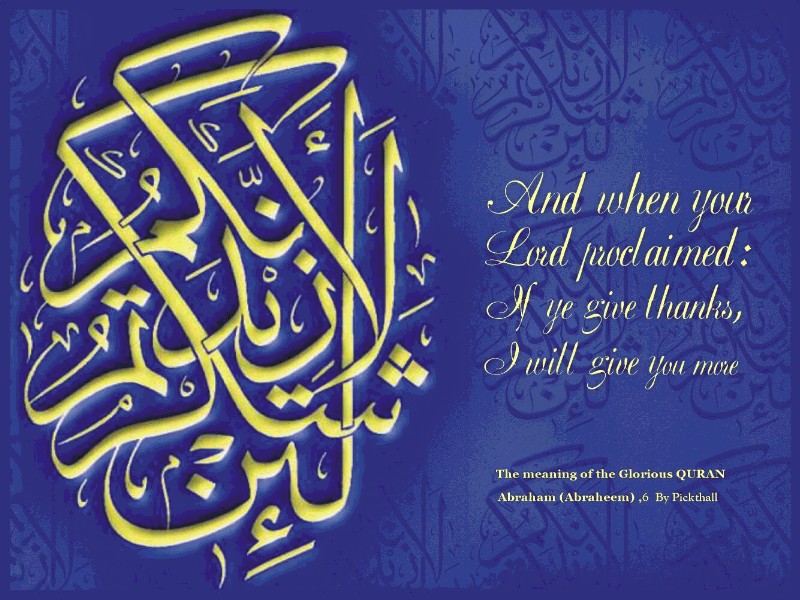 لَئِنْ شَكَرْتُمْ لَأَزِيدَنَّكُمْ
And when your
Lord proclaimed:
If ye give thanks,
I will give you more
The meaning of the Glorious QURAN
Abraham (Abraheem) ,6 By Pickthall